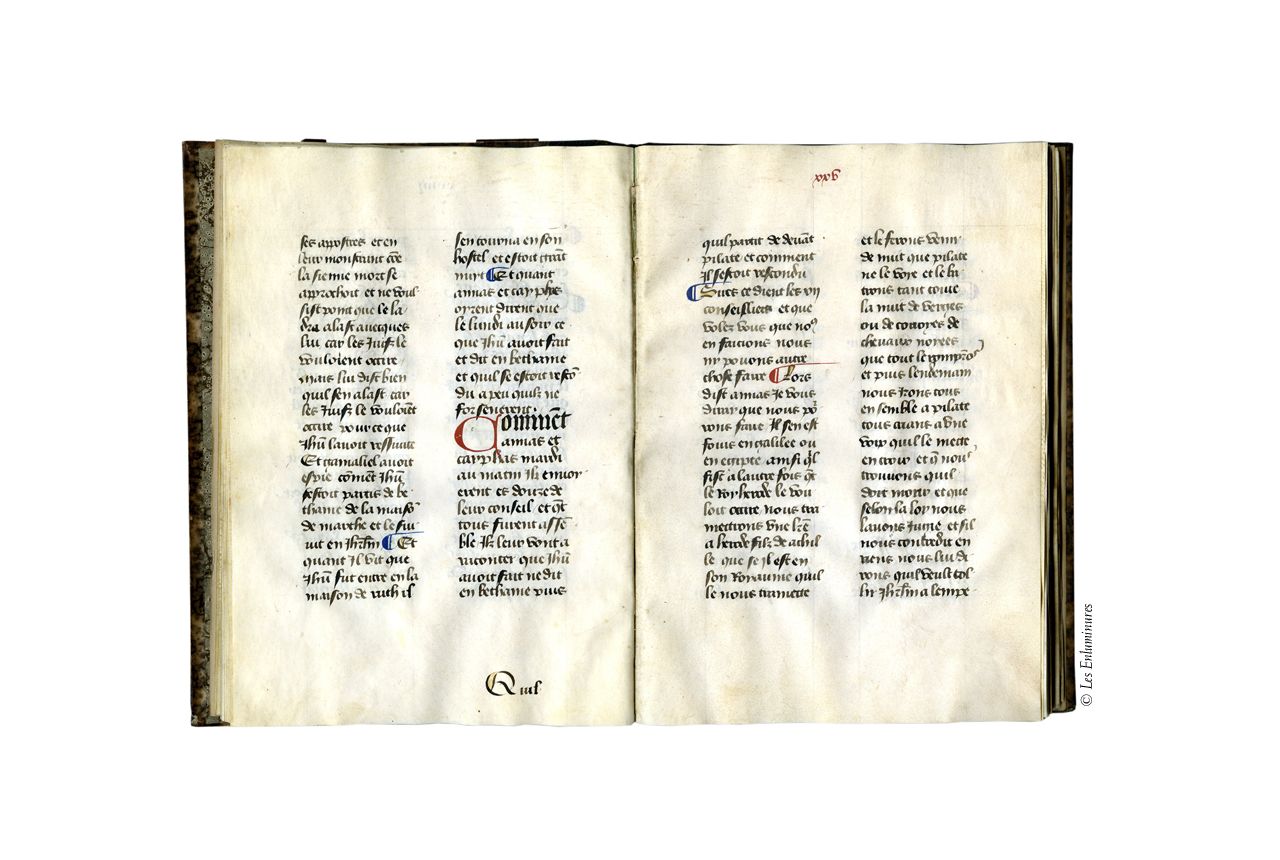 ses apostres et en
leur monstrant cõe
la sienne mort se
approchoit et ne voul
sist point que le la
dre alast avecques
lui car les Juifz le
vouloient occire
mais lui dist bien
quil sen alast car
les Juifz le vouloiẽt
occire pour ce que
Jhũ lavoit ressuscite
Et gamaliel avoit
espie comẽt Jhũ
sestoit partis de be
thanie de la maisõ
de marthe et le sui
vit en Jhrlm Et
quant Jl vit que
Jhũ fut entre en la
maison de ruth il
sen tourna en son
hostel et estoit
nuyt Et quant
annas et cayphas
oyrent dirent que
le lundi au soir ce
que Jhũ avoit fait
et dit en bethanie
et quil se estoit resco
du a peu quilz ne
forsenerent
Commẽt
annas et
cayphas mardi
au matin Jlz envoy
erent es douze de
leur conseil et qẽt
tous furent assẽ
ble Jlz leur vont a
raconter que Jhũ
avoit fait ne dit
en bethanie puis
Quil
xxv
quil partit de devãt
pilate et comment
Jl sestoit respondu
Sires ce dient les vij
conseilliers et que
volez vous que no9
en facions nous
ny povons autre
chose faire Lors
dist annas Je vous
diray que nous po
vons faire Jl sen est
fouis en galilee ou
en egipte ainsi ql
fist a lautre fois qẽ
le Roy herode le vou
loit occire nous tra
mectrons vne lrẽ
a herode filz de achil
le que se il est en
son Royaume quil
le nous tramette
et le ferons venir
de nuit que pilate
ne le voye et le ba
trons tant toute
la nuit de verges
ou de couroyes de
chevaux noyees
que tout le romprõs
et puis lendemain
nous Jrons tous
ensemble a pilate
tous crians a vne
voix quil le mette
en croix et q̃ nous
trouvons quil
doit morir et que
selon la loy nous
lavons Jugie et sil
nous contredit en
riens nous lui di
rons quil veult tol
lir Jhrlm a lempe
© Les Enluminures